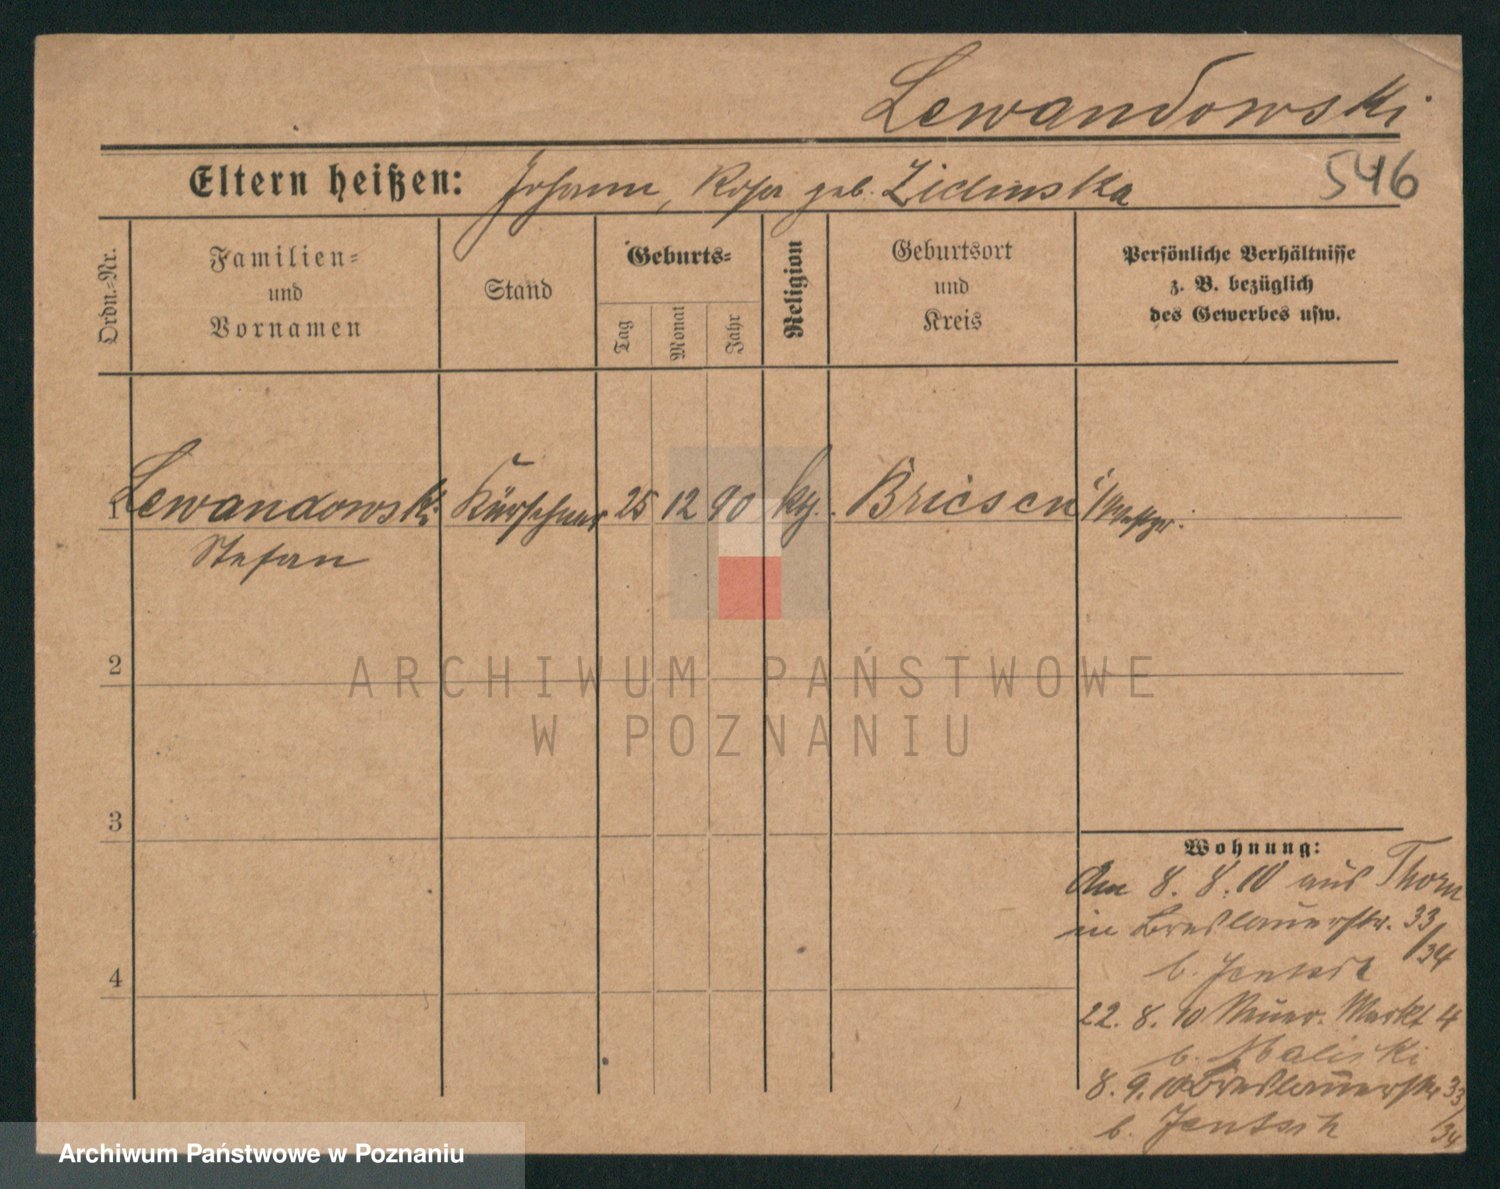 Lewandowski
Eltern heißen: Johann, Rosa geb. Zielinska
546
Ordn.-Nr.
Familien-
und
Vornamen
Stand
Geburts-
Tag
Monat
Jahr
Religion
Geburtsort
und
Kreis
Persönliche Verhältnisse
z. B. bezüglich
des Gewerbes usw.
1 Lewandowski Kürschner 25 12 90 kg. Briesen i/Westpr.
Stefan
2
3
4
Wohnung:
Am 8. 8. 10 aus Thorn
in Breslauerstr. 33/34
b. Jentsch
22. 8. 10 Neuer Markt 4
b.
8. 9. 10 Breslauerstr 33/34
b. Jentsch
ARCHIWUM PAŃSTWOWE
W POZNANIU
Archiwum Państwowe w Poznaniu